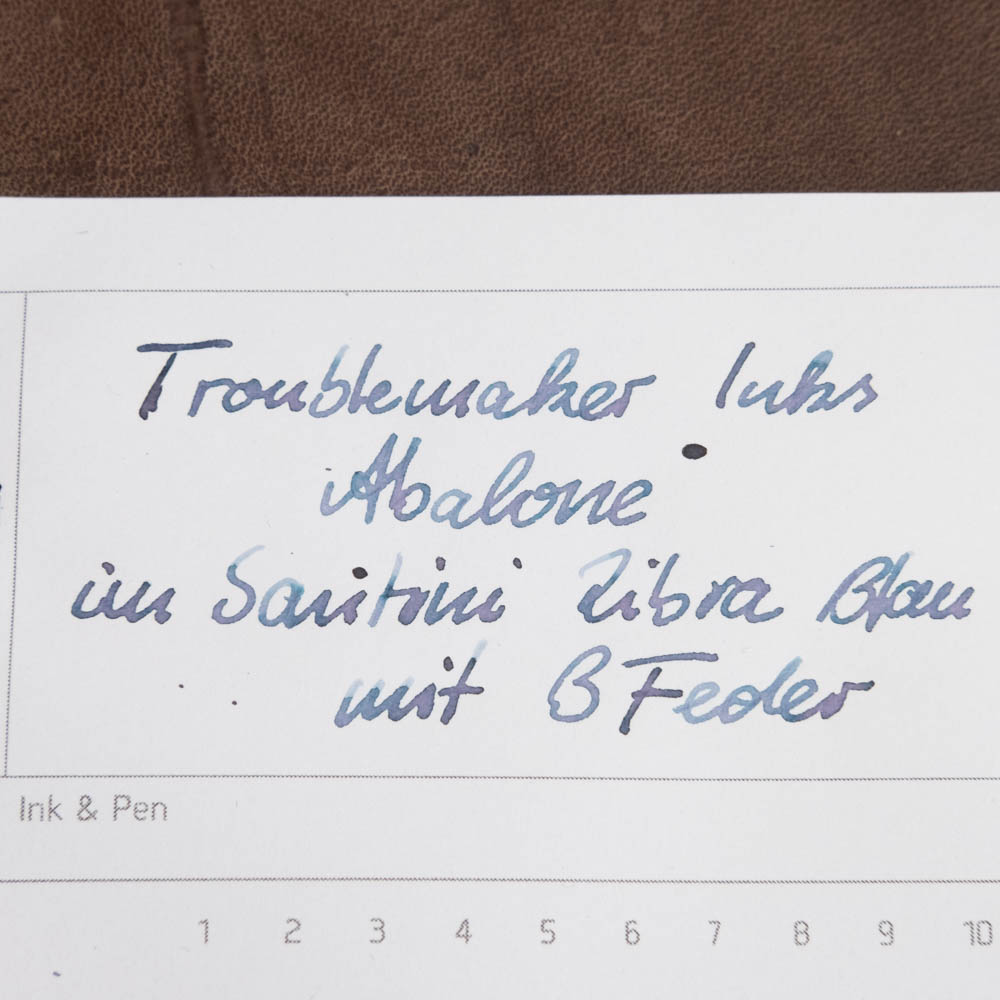 Troublemaker Inks
Abalone
im Santini Libra Blau
mit B Feder
Ink & Pen
1 2 3 4 5 6 7 8 9 10